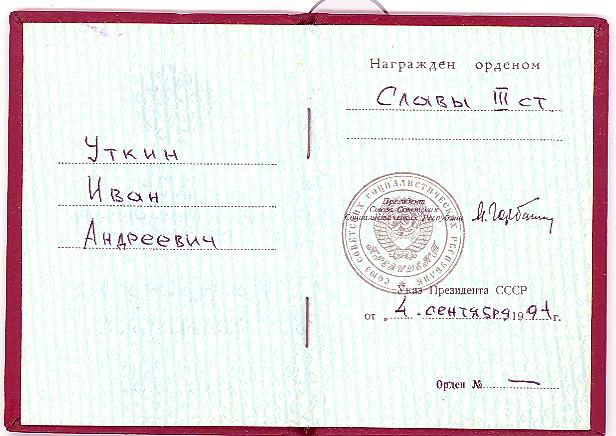 Уткин
Иван
Андреевич
Награжден орденом
Славы III ст
Президент
Союза Советских
Социалистических Республик
СОЮЗ СОВЕТСКИХ СОЦИАЛИСТИЧЕСКИХ РЕСПУБЛИК
ПРЕЗИДЕНТ
М. Горбачев
Указ Президента СССР
от „4" сентября 1991 г.
Орден № —